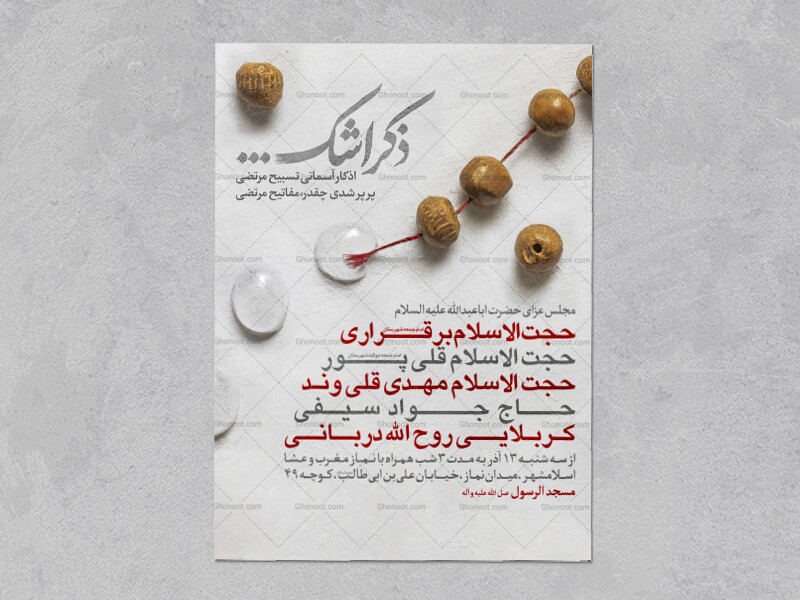 ذکر اشک ...
اذکار آسمانی تسبیح مرتضی
پرپر شدی چقدر، مفاتیح مرتضی
مجلس عزای حضرت اباعبدالله علیه السلام
حجت الاسلام برقراری
حجت الاسلام قلی پور
حجت الاسلام مهدی قلی وند
حاج جواد سیفی
کربلایی روح الله دربانی
از سه شنبه ۱۳ آذر به مدت ۳ شب همراه با نماز مغرب و عشا
اسلامشهر ، میدان نماز ، خیابان علی بن ابی طالب ، کوچه ۴۹
مسجد الرسول صل الله علیه و اله
Ghonoot.com